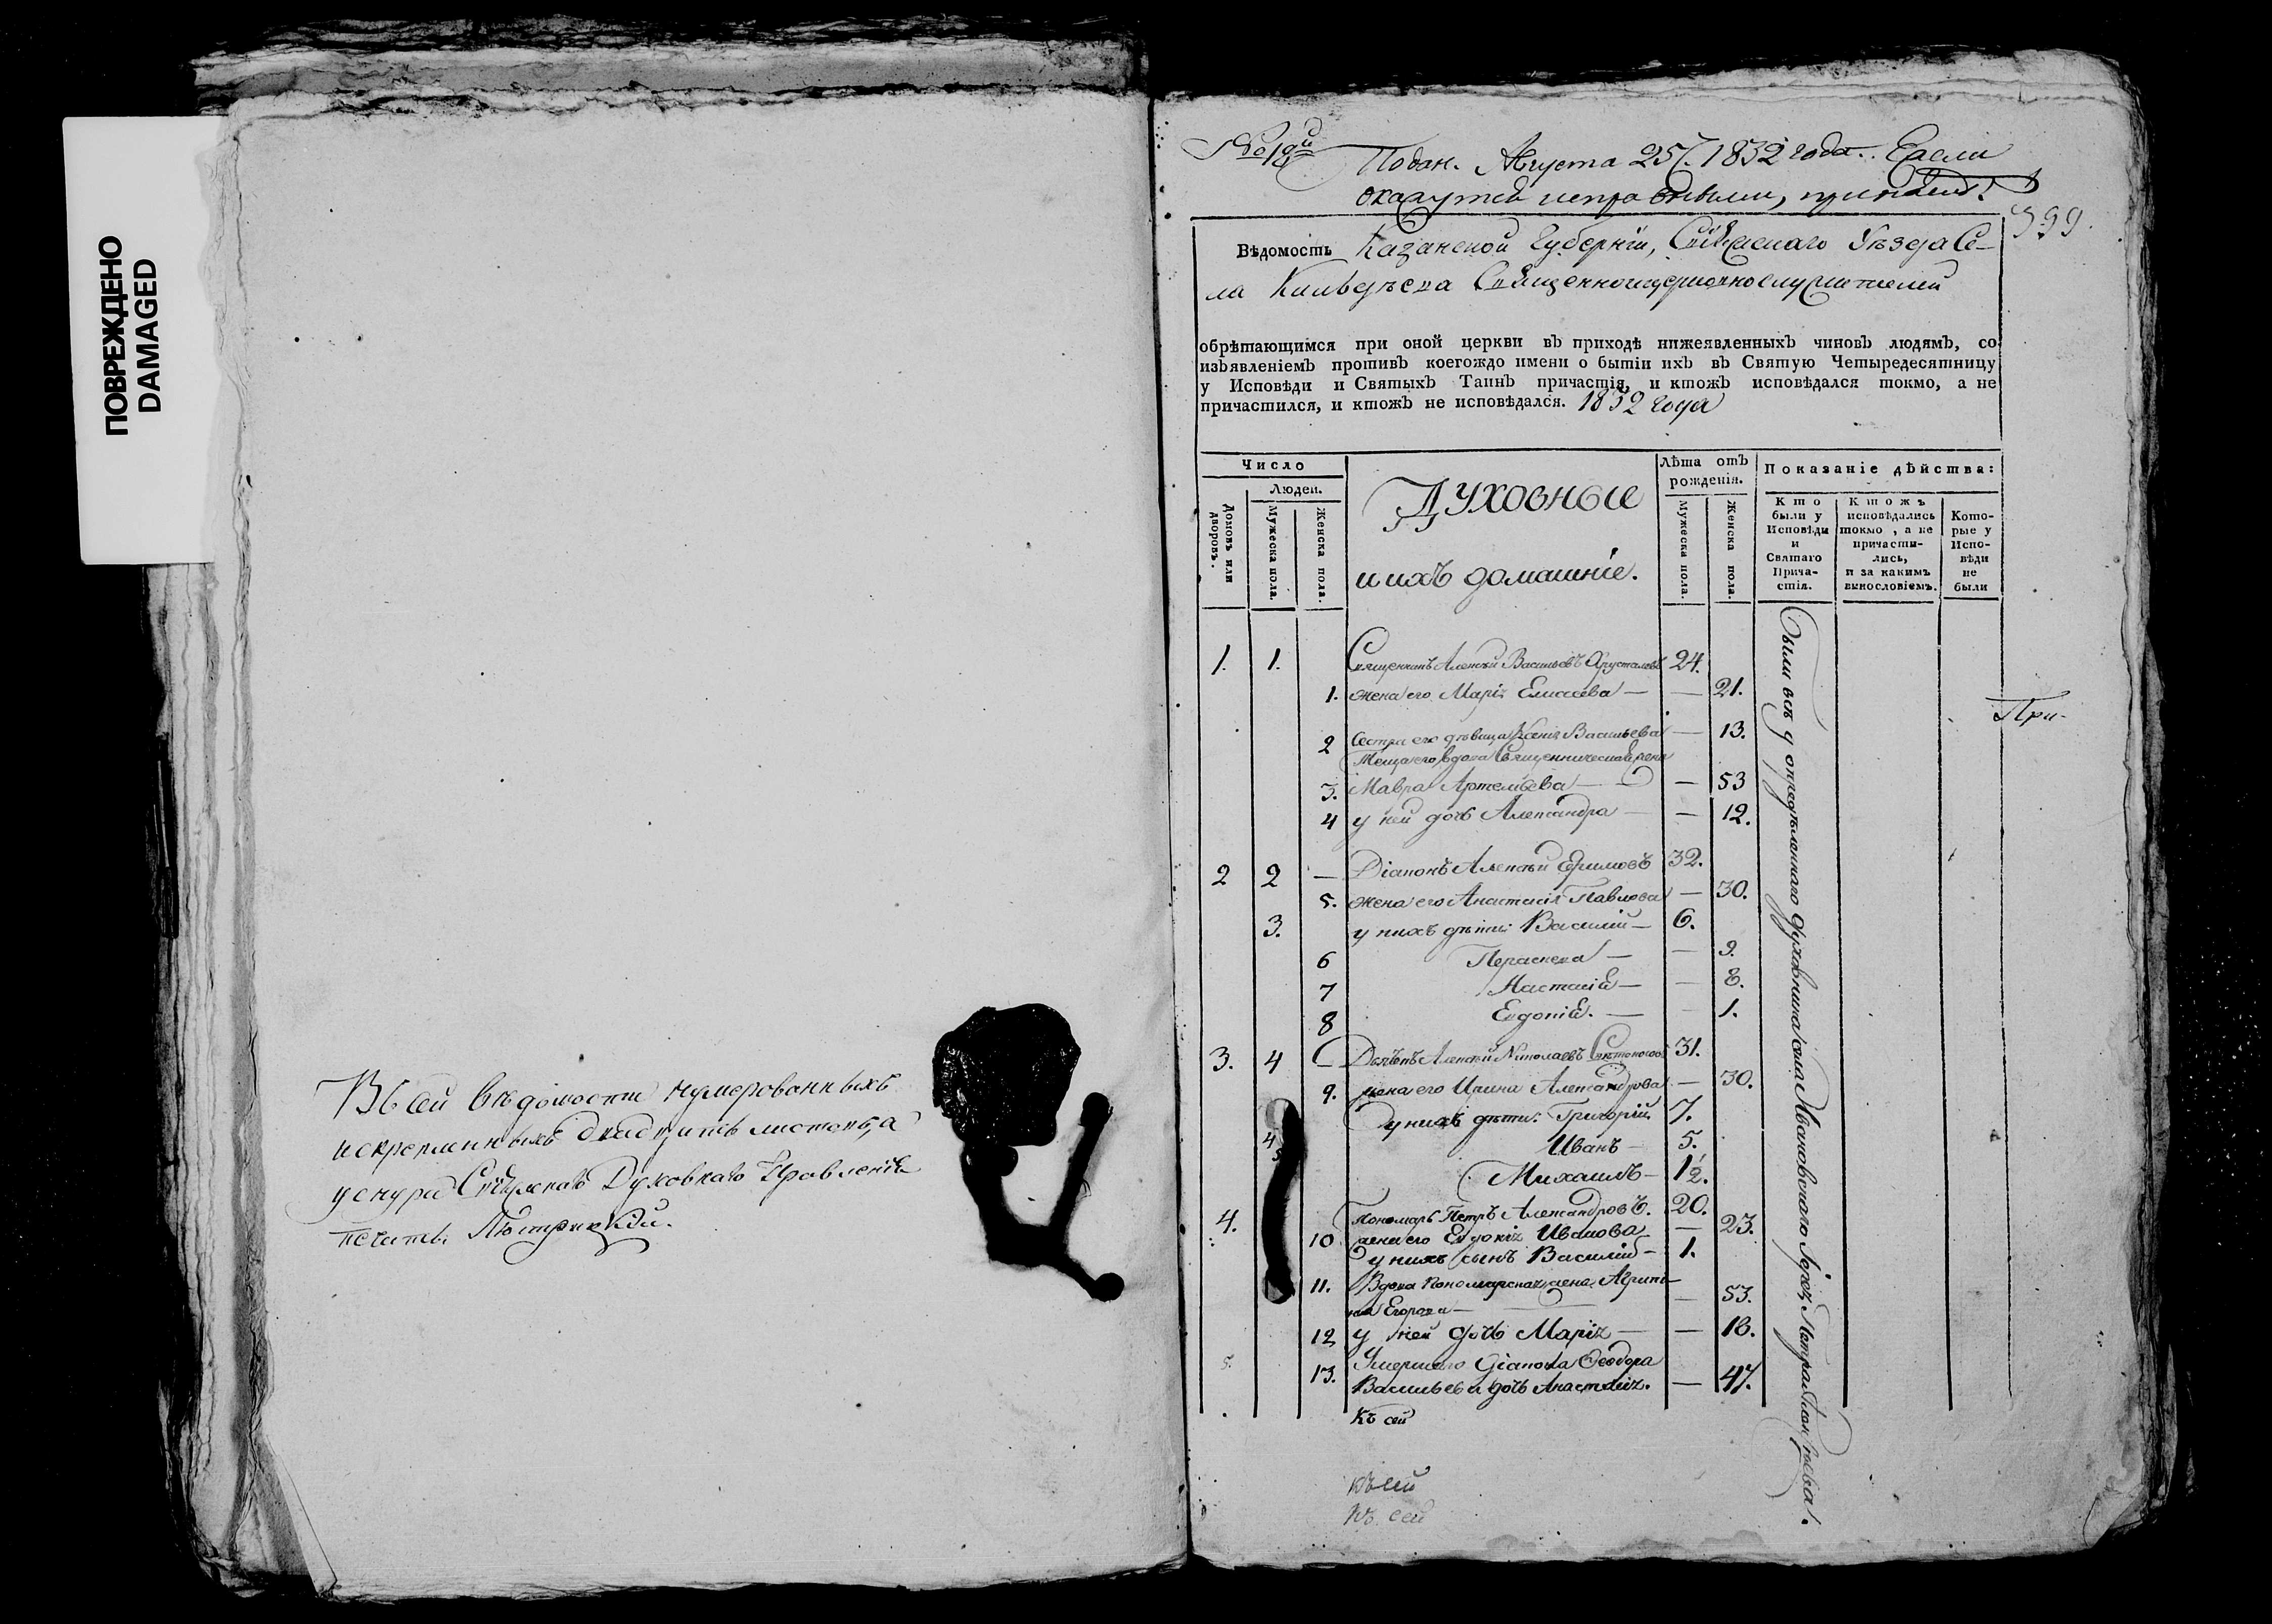 ПОВРЕЖДЕНО
DAMAGED
Въ сей вѣдомости нумерованныхъ
искрепленныхъ двадцать листовъ, а
у снура Свіяжскаго Духовнаго Правленія
печать.
Подан. Августа 25. 1832 года. Если
окажутся исправными, принять.
399.
Вѣдомость Казанской Губерніи, Свіяжскаго Уѣзда Се-
ла Кильдѣева Священноицерковнослужителей
обрѣтающимся при оной церкви въ приходѣ нижеявленныхъ чиновъ людямъ, со
изъявленіемъ противъ коегождо имени о бытіи ихъ въ Святую Четыредесятницу
у Исповѣди и Святыхъ Таинъ причастія, и ктожъ исповѣдался токмо, а не
причастился, и ктожъ не исповѣдался. 1832 года
Число
Людей.
Домовъ или дворовъ.
Мужеска пола.
Женска пола.
Духовные
и ихъ домашніе.
Лѣта отъ
рожденія.
Мужеска пола.
Женска пола.
Показаніе дѣйства:
Кто
были у
Исповѣди
и
Святаго
Прича-
стія.
Ктожъ
исповѣдались
токмо, а не
причасти-
лись,
и за какимъ
винословіемъ.
Кото-
рые у
Испо-
вѣди
не
были
1. 1. Священникъ Алексѣй Васильевъ Хрусталевъ 24.
1. жена его Марія Елисѣева — — 21.
2 Сестра его дѣвица Ксенія Васильева — 13.
Теща его вдова Священническая жена
3. Мавра Артемьева — — 53
4 у ней дочь Александра — — 12.
2 2 — Діаконъ Алексѣй Ефимовъ 32.
5. жена его Анастасія Павлова — 30.
3. у нихъ дѣти: Василій — 6.
6 Параскева — — 9.
7 Настасія — — 8.
8 Евдокія. — — 1.
3. 4 — Дьячокъ Алексѣй Николаевъ 31.
9. жена его Ирина Александрова — 30.
у нихъ дѣти: Григорій 7.
Иванъ — 5.
Михаилъ — 1½.
4. Пономарь Петръ Александровъ. 20.
10 жена его Евдокія Иванова — 23.
у нихъ сынъ Василій — 1.
11. Вдова пономарская жена Агрип-
на Егорова — — 53.
12 у ней дочь Марія — — 18.
5. Умершаго діакона Ѳеодора
13. Васильева дочь Анастасія. — 47.
Были всѣ у опредѣленнаго духовника села Ивановскаго Іерея Петра
При-
Къ сей
къ сей
Къ сей